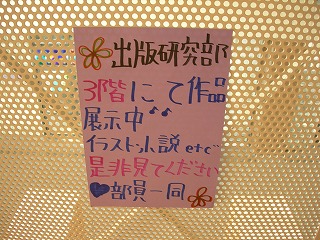 出版研究部
3階にて作品
展示中
イラスト・小説 etc
是非見てください
部員一同